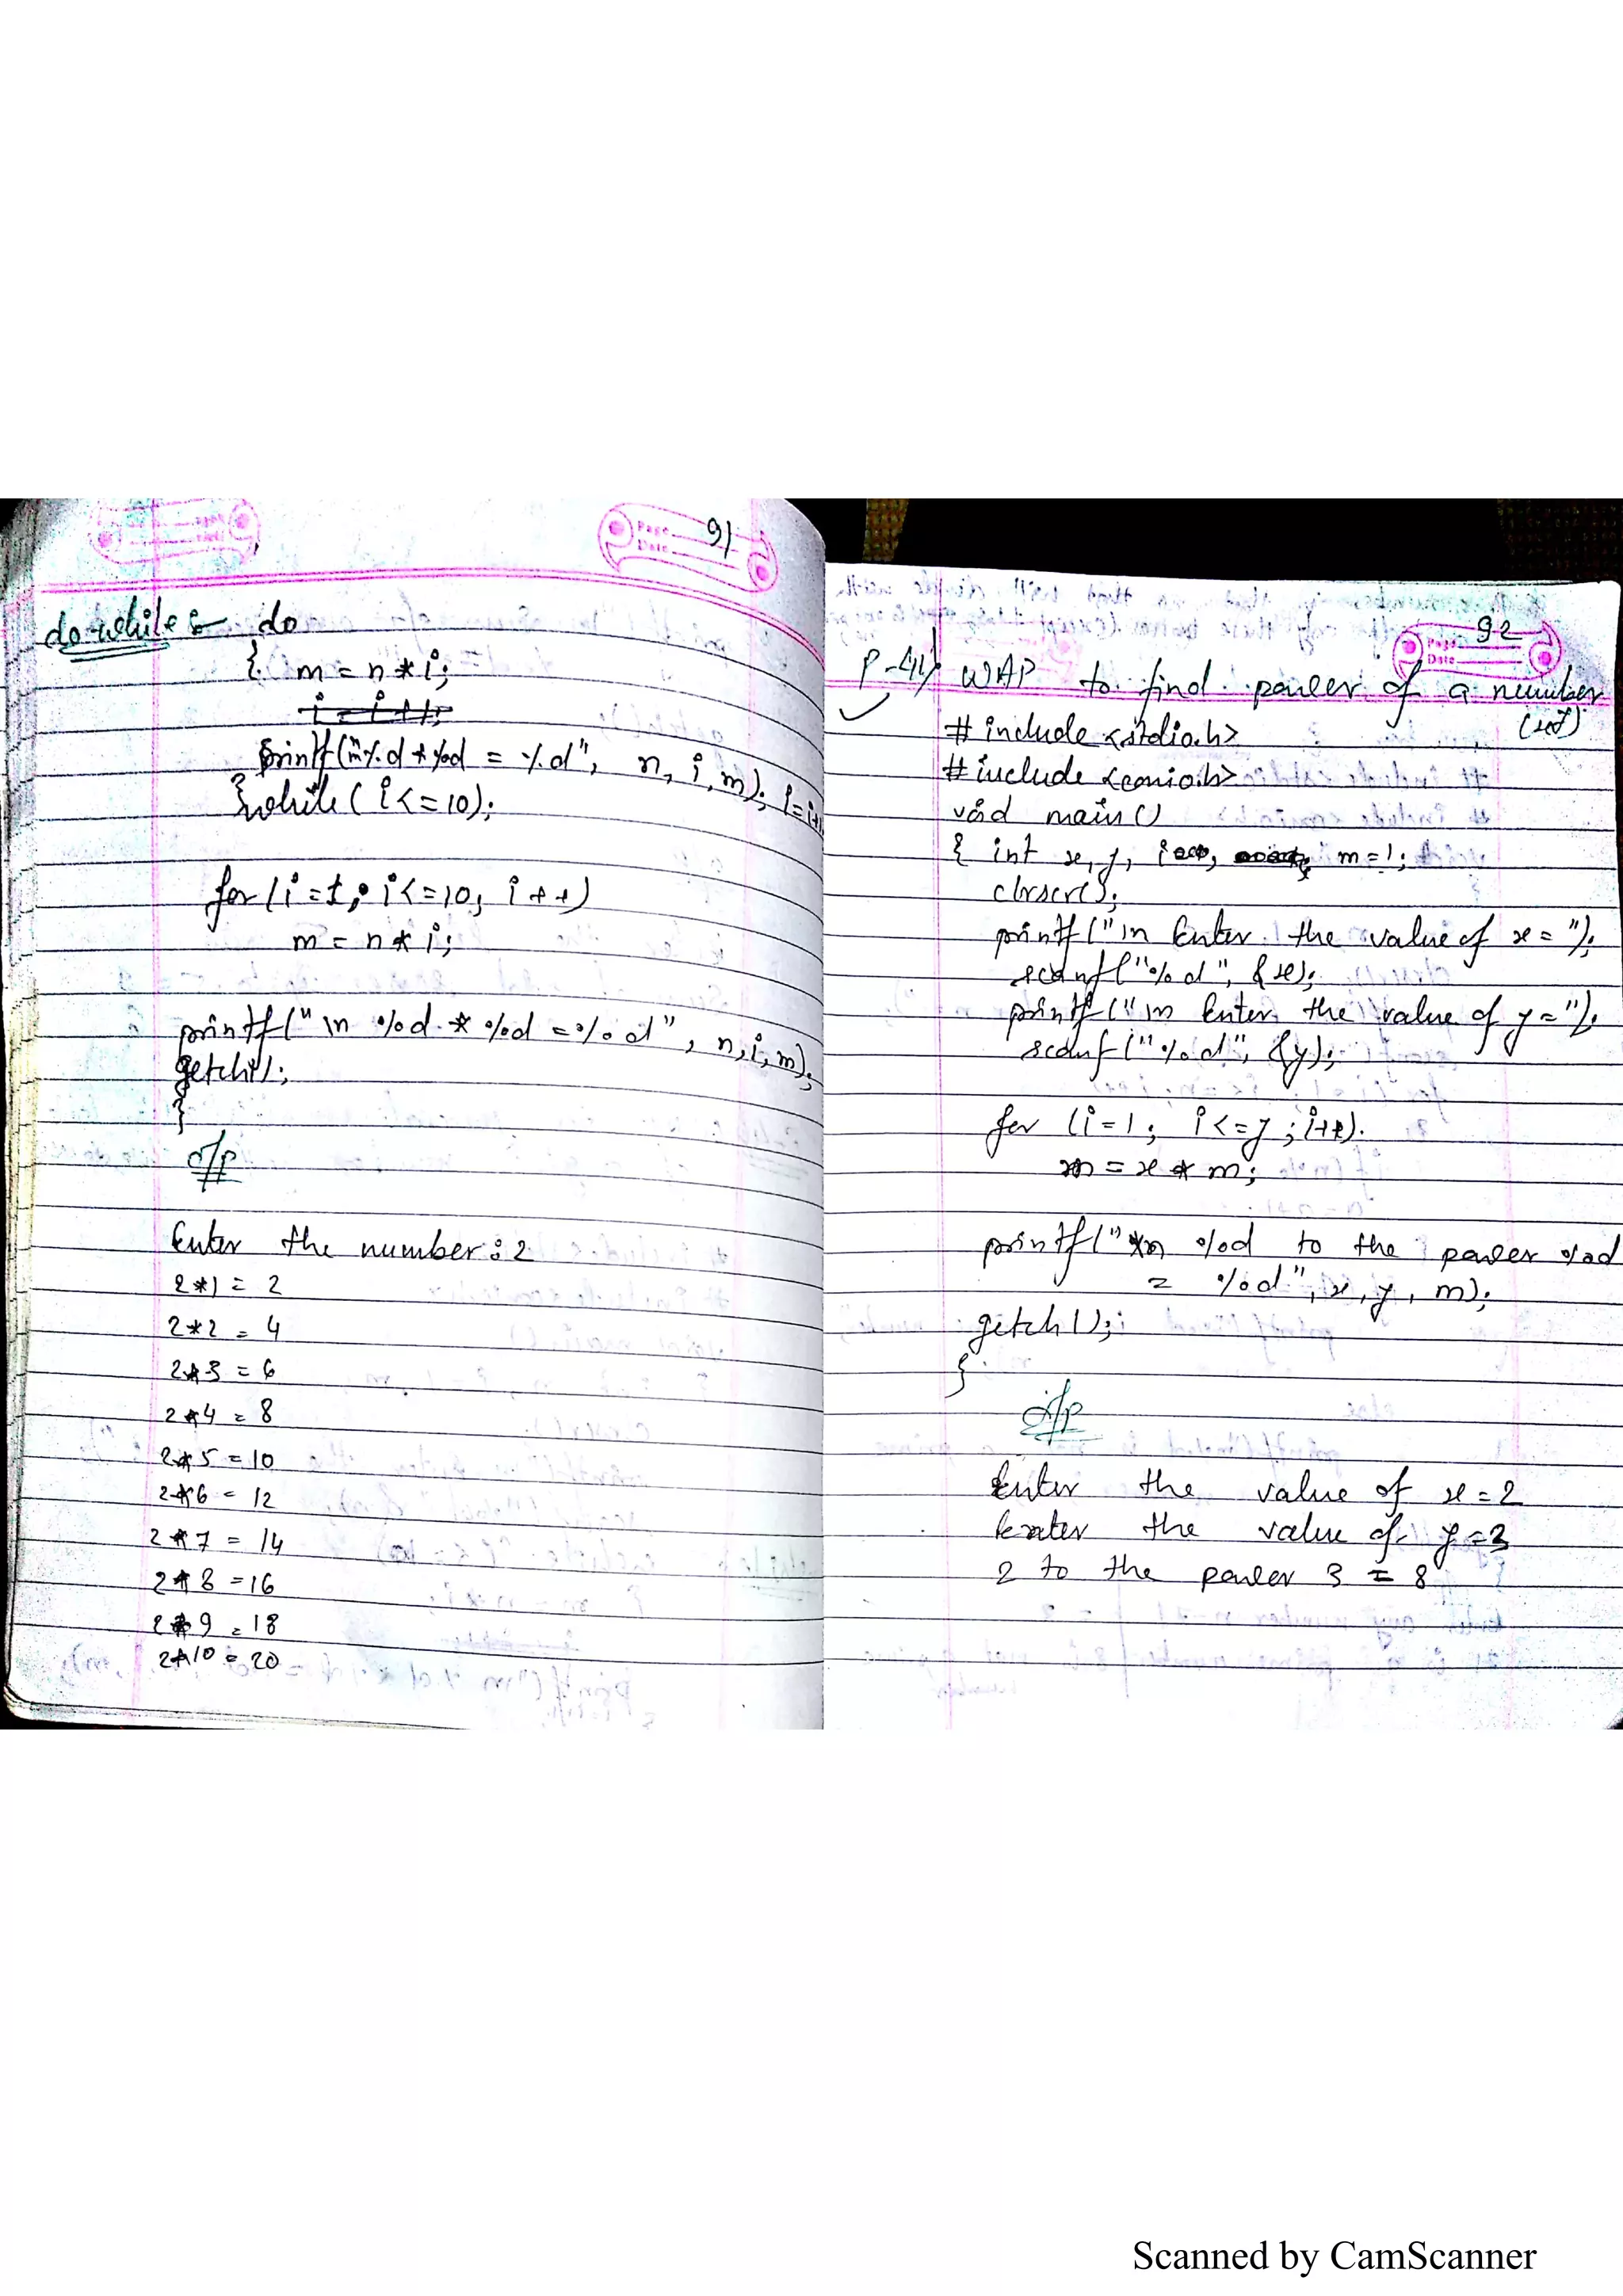 Page 91
Date
do-while :- do
{ m = n * i;
i = i++;
printf("\n%d * %d = %d", n, i, m); i=i+1
}while (i<=10);
for (i=1; i<=10; i++)
m = n * i;
printf("\n %d * %d = %d", n, i, m);
getch();
}
o/p
Enter the number : 2
2*1 = 2
2*2 = 4
2*3 = 6
2*4 = 8
2*5 = 10
2*6 = 12
2*7 = 14
2*8 = 16
2*9 = 18
2*10 = 20
Page 92
Date
P-44 WAP to find power of a number
#include <stdio.h>
#include <conio.h>
void main()
{ int x, y, i, m=1;
clrscr();
printf("\n Enter the value of x = ");
scanf("%d", &x);
printf("\n Enter the value of y = ");
scanf("%d", &y);
for (i=1; i<=y; i++)
m = x * m;
printf("\n %d to the power %d
= %d", x, y, m);
getch();
}
o/p
Enter the value of x = 2
Enter the value of y = 3
2 to the power 3 = 8
Scanned by CamScanner